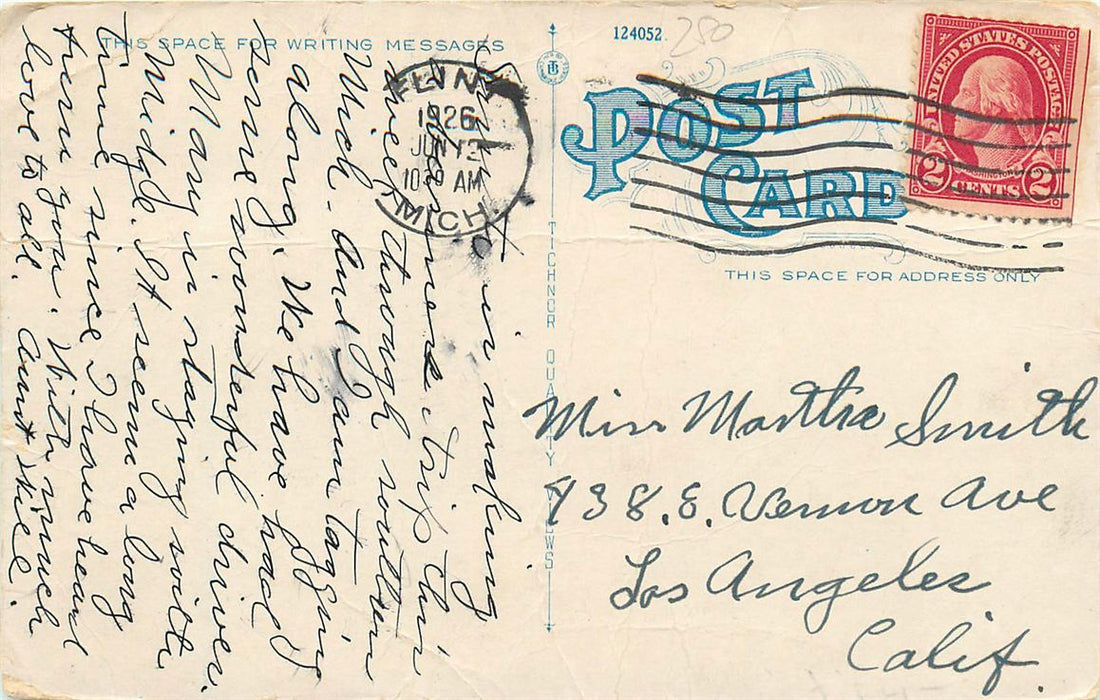 THIS SPACE FOR WRITING MESSAGES
124052
250
POST CARD
THIS SPACE FOR ADDRESS ONLY
FLINT
1926
JUN 12
10 30 AM
MICH.
UNITED STATES POSTAGE
WASHINGTON
2 CENTS 2
TICHNOR QUALITY VIEWS
is making
business trip this
week through southern
Mich. And I am tagging
along. We have had
some wonderful drives.
Mary is staying with
Midge. It seems a long
time since I have heard
from you. With much
love to all. Aunt
Miss Martha Smith
938. E. Vernon Ave
Los Angeles
Calif.